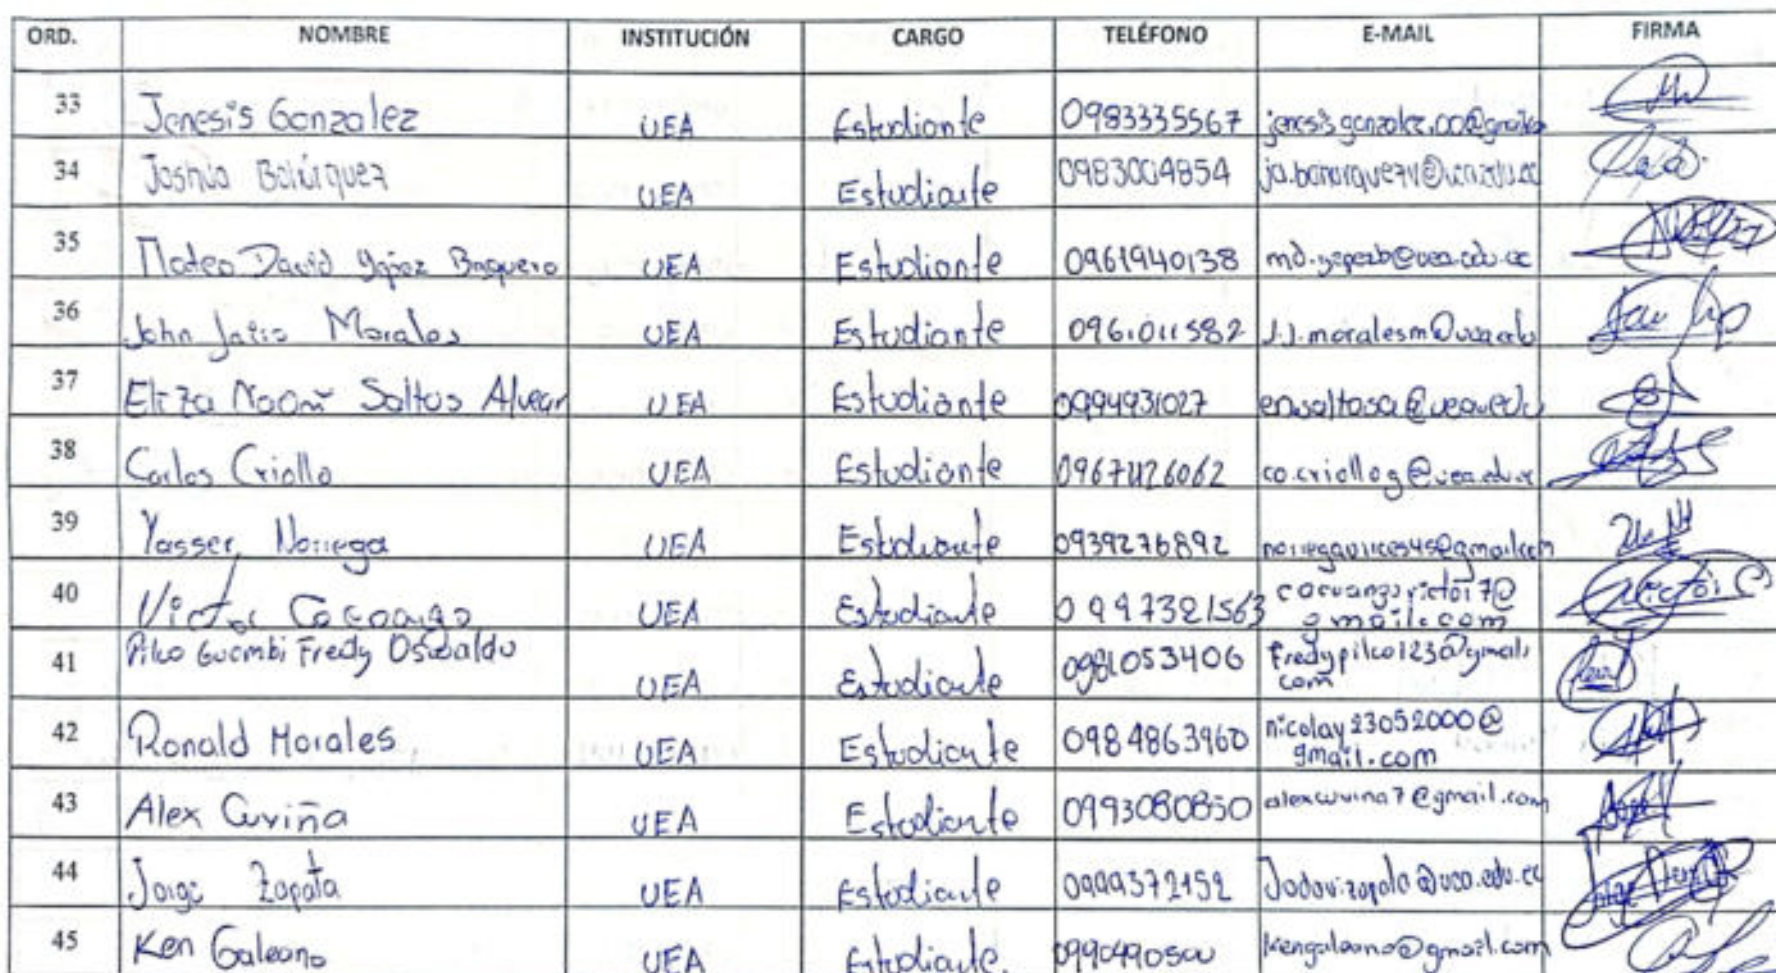 ORD. NOMBRE INSTITUCIÓN CARGO TELÉFONO E-MAIL FIRMA
33 Jenesis Gonzalez UEA Estudiante 0983335567
34 Joshua UEA Estudiante 0983004854
35 Mateo David Yépez Baquero UEA Estudiante 0961940138
36 John Jairo Morales UEA Estudiante 0961011582 J.J.moralesm@uea.edu
37 Eliza Noomi Saltos Alvear UEA Estudiante 0994931027
38 Carlos Criollo UEA Estudiante co.criollog@uea.edu.ec
39 Yasser Noriega UEA Estudiante 0939276892
40 Victor Cocoango UEA Estudiante 0997321563 cocuangovictor17@
gmail.com
41 Pilco Guambi Fredy Oswaldo UEA Estudiante 0981053406 fredypilco123@gmail.
com
42 Ronald Morales UEA Estudiante 0984863960 nicolay23052000@
gmail.com
43 Alex Cuviña UEA Estudiante 0993080850 alexcuvina7@gmail.com
44 Jorge Zapata UEA Estudiante 0999372152
45 Ken Galeano UEA Estudiante. kengaleano@gmail.com